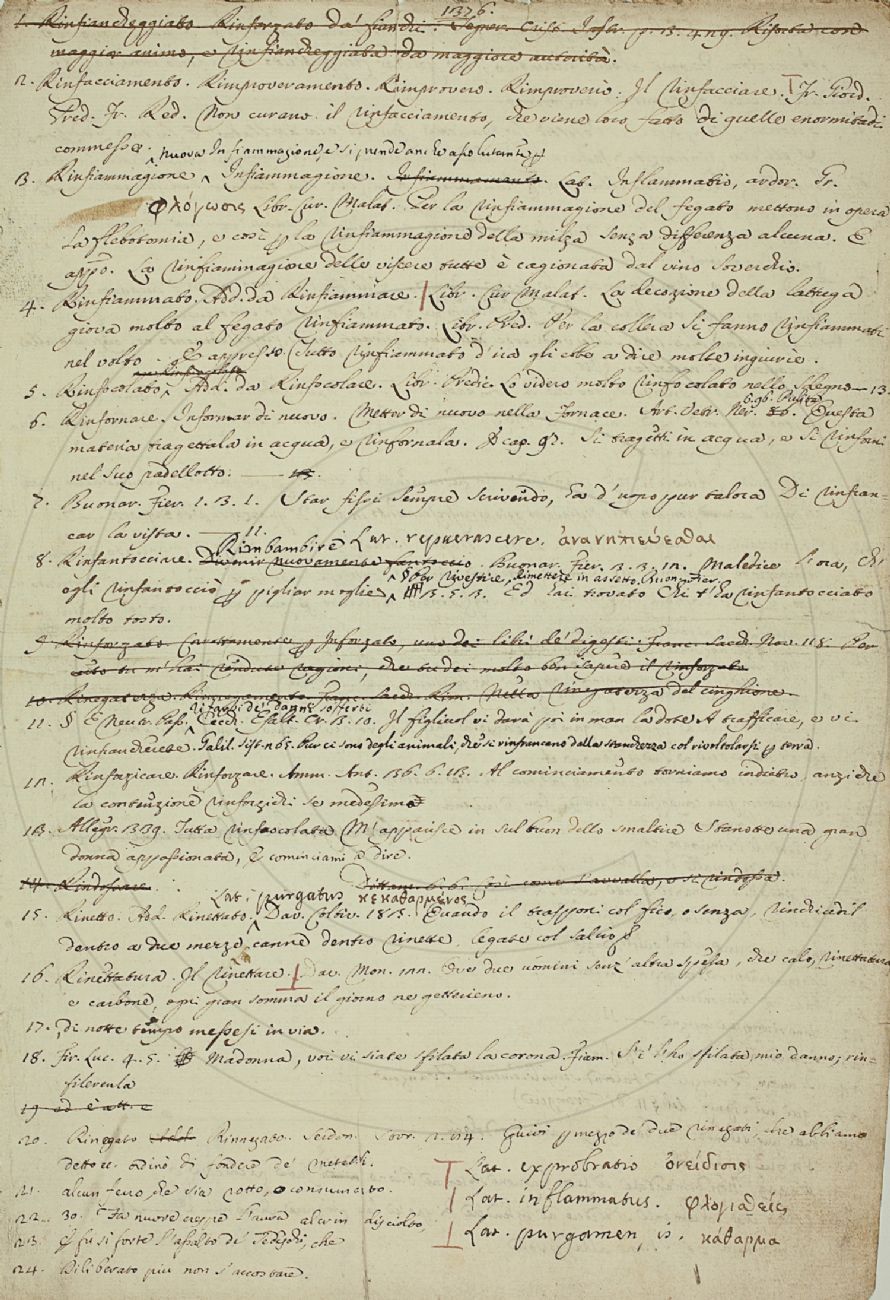 1376.
1. Rinfiancheggiato Rinforzato da' fianchi. Segner. Crist. Instr. p. 13. 4. n 9. Risorta con
maggior animo, e rinfiancheggiata da maggiore autorità.
2. Rinfacciamento. Rimproveramento. Rimprovero. Rimproverio. Il rinfacciare. Fr. Giord.
Pred. Fr. Red. Non curano il rinfacciamento, che viene loro fatto di quelle enormità di
commesse.
nuova Infiammazione, e si prende anche assolutamte p
3. Rinfiammagione Infiammagione. Infiammamento. Lat. Inflammatio, ardor. Gr.
φλόγωσις Libr. Cur. Malat. Per la rinfiammagione del fegato mettono in opera
la flebotomia, e così p la rinfiammagione della milza senza differenza alcuna. E
appo. La rinfiammagione delle viscere tutte è cagionata dal vino soverchio.
4. Rinfiammato. Ad. da Rinfiammare. Libr. Cur Malat. La decozione della lattuga
giova molto al fegato rinfiammato. Libr. Pred. Per la collera si fanno rinfiammati
nel volto. E appresso Tutto rinfiammato d'ira gli ebbe a dire molte ingiurie.
5. Rinfocolato, Add. da Rinfocolare. Libr. Predic. Lo videro molto rinfocolato nello sdegno 13.
6. Rinfornare. Infornar di nuovo. Metter di nuovo nella fornace. Art. Vetr. Ner. 6. Questa
materia tragettala in acqua, e rinfornala. E cap. 97. Si tragetti in acqua, e si rinforni
nel suo padellotto.
7. Buonar. Fier. 1. 3. 1. Star fissi sempre scrivendo, ha d'uopo pur talora Di rinfran-
car la vista. 11.
Rimbambire Lat. repuerascere. ἀνανηπιεύεσθαι
8. Rinfantocciare. Divenir nuovamente fantoccio. Buonar. Fier. 3. 3. 12. Maledico l'ora, ch'
§ Per rivestire, rimettere in assetto. Buon. Fier.
ogli rinfantocciò p pigliar moglie 3. 5. 3. Ed hai trovato Chi t'ha rinfantocciato
molto tosto.
9. Rinforzato Corrottamente p Inforzato, uno dei libri de' digesti. Franc. Sacch. Nov. 115. Por
cito tu m'hai renduto ragioni, che tu dei molto ben sapere il rinforzato
10. Rinegaterza. Rinnegamento. Franc. Sacch. Rim. Nella rinegaterza del cinghione.
Rifarsi de' danni sofferti
11. § E Neutr. Pass. Cecch. Esalt. Cr. 3. 10. Il figliuol vi darà poi in man la dote A trafficare, e vi
rinfrancherete. Galil. Sist. n 65. Pur ci sono degli animali, che si rinfrancano dalla stanchezza col rivoltolarsi p terra.
12. Rinforzicare. Rinforzare. Amm. Ant. 36. 6. 13. Al cominciamento torniamo indietro, anzi che
la contenzione rinforzichi se medesima
13. Allegr. 339. Tutta rinfuocolata M'apparisce in sul buon dello smaltire Stanotte una gran
donna appassionata, E cominciami a dire.
14. Rindossare. Dittam. 6. 6. Così come s'avvalla, e si rindossa
Lat. purgatus κεκαθαρμένος
15. Rinetto. Ad. Rinettato. Dav. Coltiv. 183. Quando il trasponi col fico, o senza, rinchiudil
dentro a due mezze canne dentro rinette, legate col salcio
16. Rinettatura. Il rinettare. Dav. Mon. 122. Che due uomini senz' altra spesa, che calo, rinettatura
e carbone, ogni gran somma il giorno ne gettorieno.
17. di notte tempo messesi in via.
18. Fir. Luc. 4. 5. Madonna, voi vi siete sfilata la corona. Fiam. S'i' l'ho sfilata, mio danno; rin-
filerolla
19. ed è att. e
20. Rinegato Rinnegato. Serdon. Stor. 2. 84. Quivi p mezzo de' due rinegati, che abbiamo
detto ec. ordinò di fondere de' metalli.
21. alcun ferro, che sia rotto, o consumato.
22. 30. Fa nuove creppe e rinova alcun disciolto,
23. E fu sì forte l'assalto de' Tedeschi, che
24. Diliberato più non s'accostare.
Lat. exprobratio ὀνείδισις
Lat. inflammatus. φλογισθείς
Lat. purgamen, is. κάθαρμα